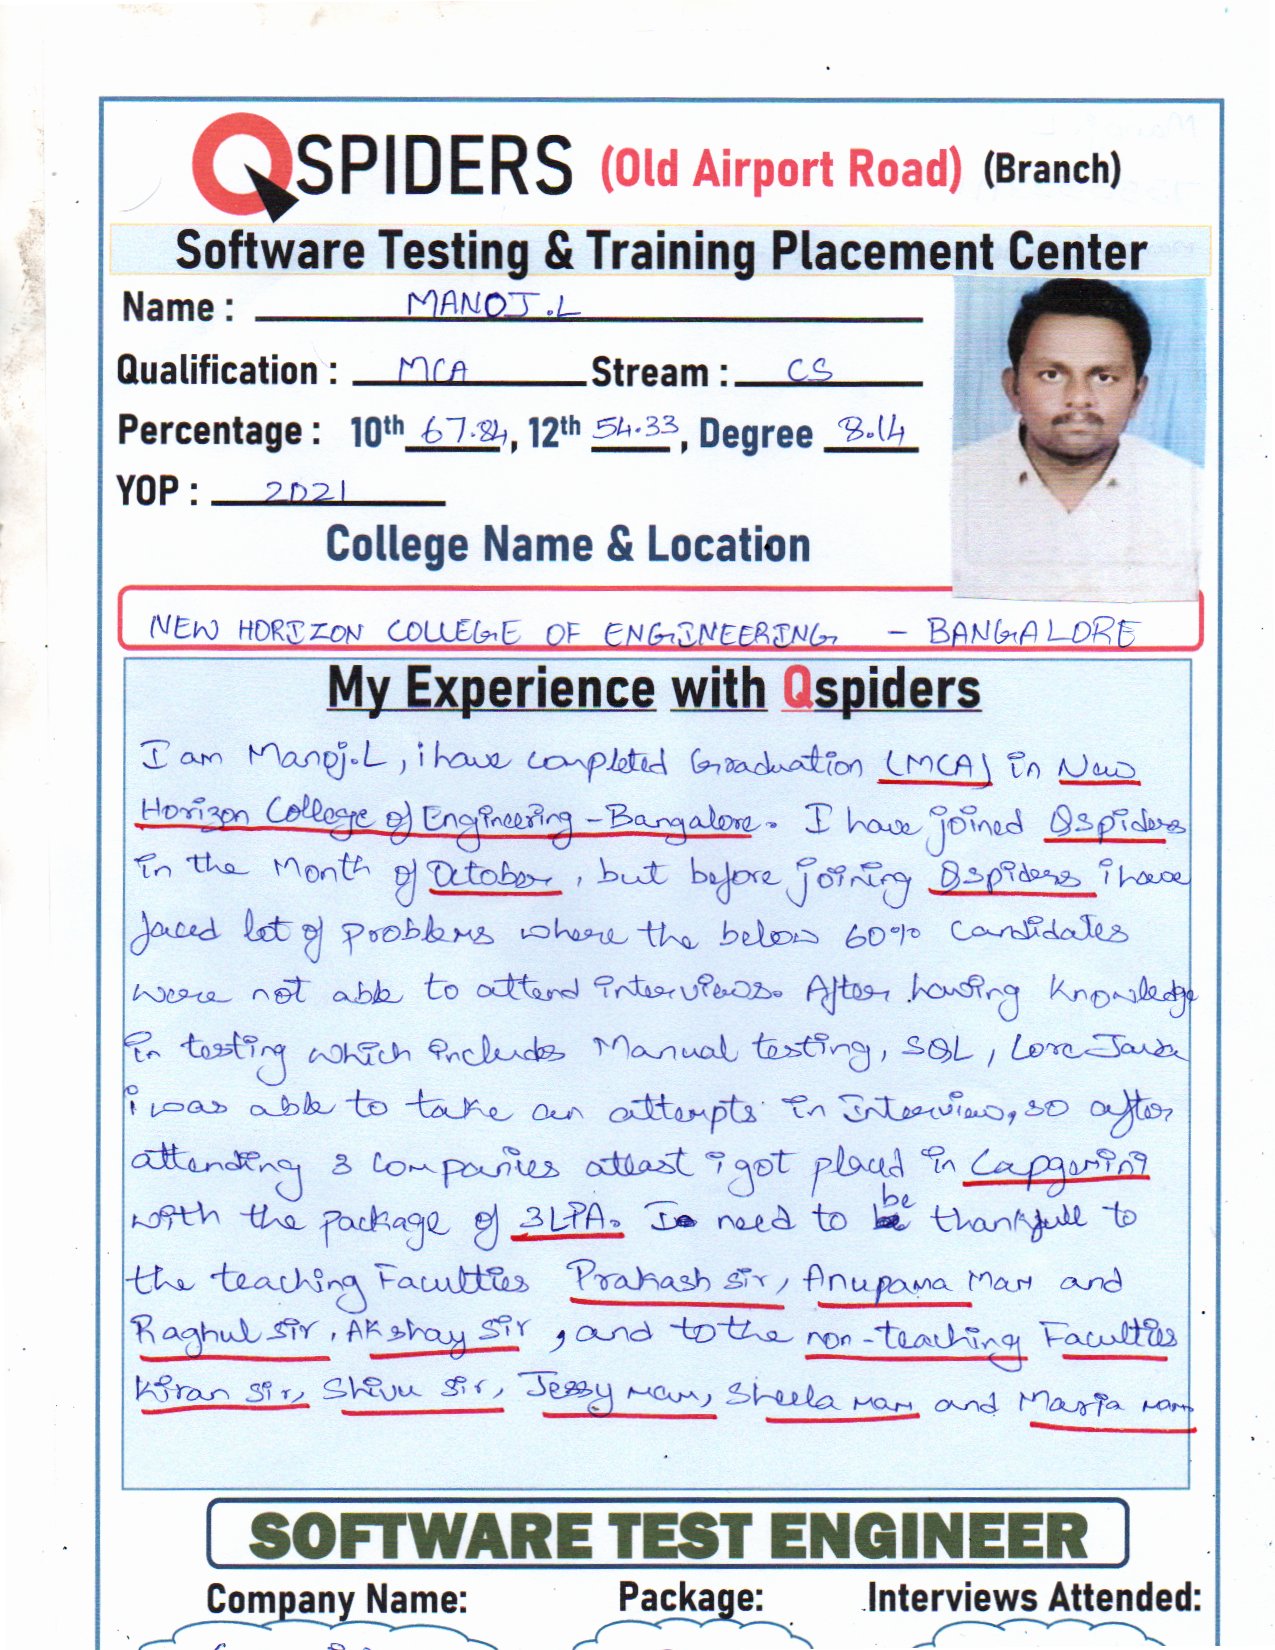 QSPIDERS (Old Airport Road) (Branch)
Software Testing & Training Placement Center
Name : MANOJ.L
Qualification : MCA Stream : CS
Percentage : 10th 67.84, 12th 54.33, Degree 8.14
YOP : 2021
College Name & Location
NEW HORIZON COLLEGE OF ENGINEERING - BANGALORE
My Experience with Qspiders
I am Manoj.L, i have completed Graduation (MCA) in New
Horizon College of Engineering - Bangalore. I have joined Qspiders
in the Month of October, but before joining Qspiders i have
faced lot of problems where the below 60% candidates
were not able to attend interviews. After having knowledge
in testing which includes Manual testing, SQL, Core Java
i was able to take an attempts in Interview, so after
attending 3 companies atleast i got placed in Capgemini
with the package of 3LPA. I need to be thankfull to
the teaching Faculties Prakash sir, Anupama Mam and
Raghul sir, Akshay sir, and to the non-teaching Faculties
Kiran sir, Shivu sir, Jessy mam, Sheela mam and Maria mam
SOFTWARE TEST ENGINEER
Company Name: Package: Interviews Attended: